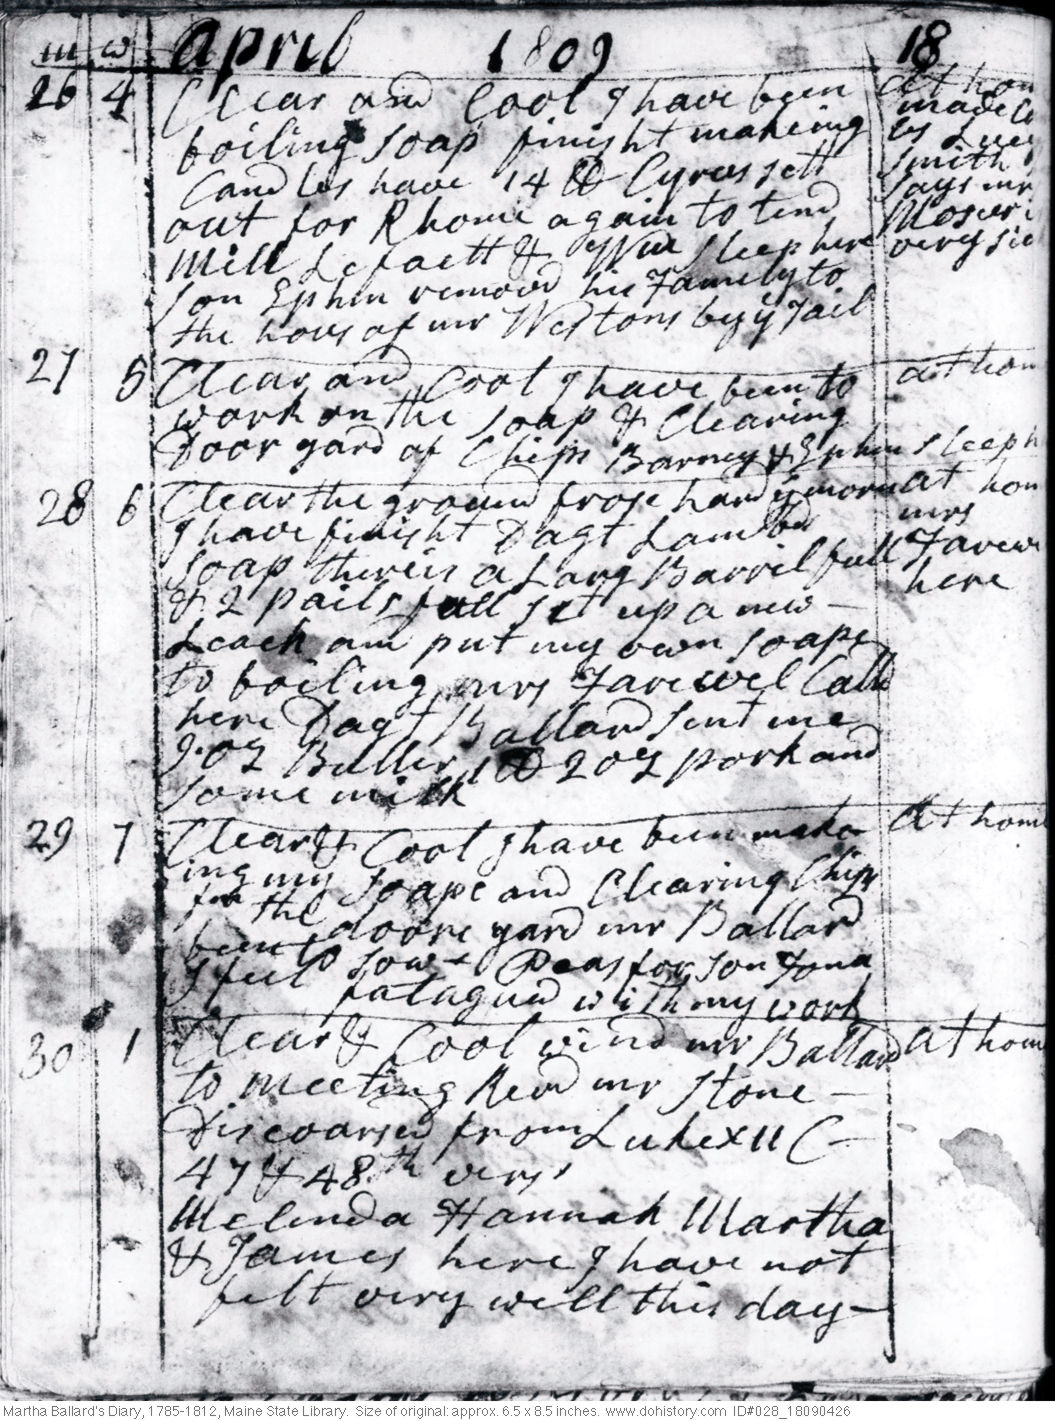 m w April 1809 18
26 4 Clear and Cool I have been at hom
boiling soap finisht makeing made C
Candles have 14 lb Cyrus sett by Lucy
out for Rhome again to tend smith
Mill Lefaett & Wm sleep here says mr
son Ephm removd his Famely to Mosier i
the hous of mr Westons by ye Jail very sic
27 5 Clear and Cool I have been to at hom
work on the soap & Clearing
Door yard of Chips Barney & Ephm sleep h
28 6 Clear the ground frose hard ye morn at hom
I have finisht Dagt Lambd mrs
soap there is a Larg Barril full Farew
& 2 pails full set up a new – here
Leach and put my own soape
to boiling mrs Farewel Calld
here Dagt Ballard sent me
oz Butter 1 lb 2 oz pork and
some milk
29 7 Clear & Cool I have been make at home
ing my soape and Clearing Chips
from the doore yard mr Ballard
been to sow Peas for son Jona
I feel fatagued with my work
30 1 Clear & Cool wind mr Ballard at home
to meeting Revd mr Stone –
discoarsed from Luke XII C –
47 & 48th vers
Melinda Hannah Martha
& James here I have not
felt very well this day –
Martha Ballard's Diary, 1785-1812, Maine State Library. Size of original: approx. 6.5 x 8.5 inches. www.dohistory.com ID#028_18090426